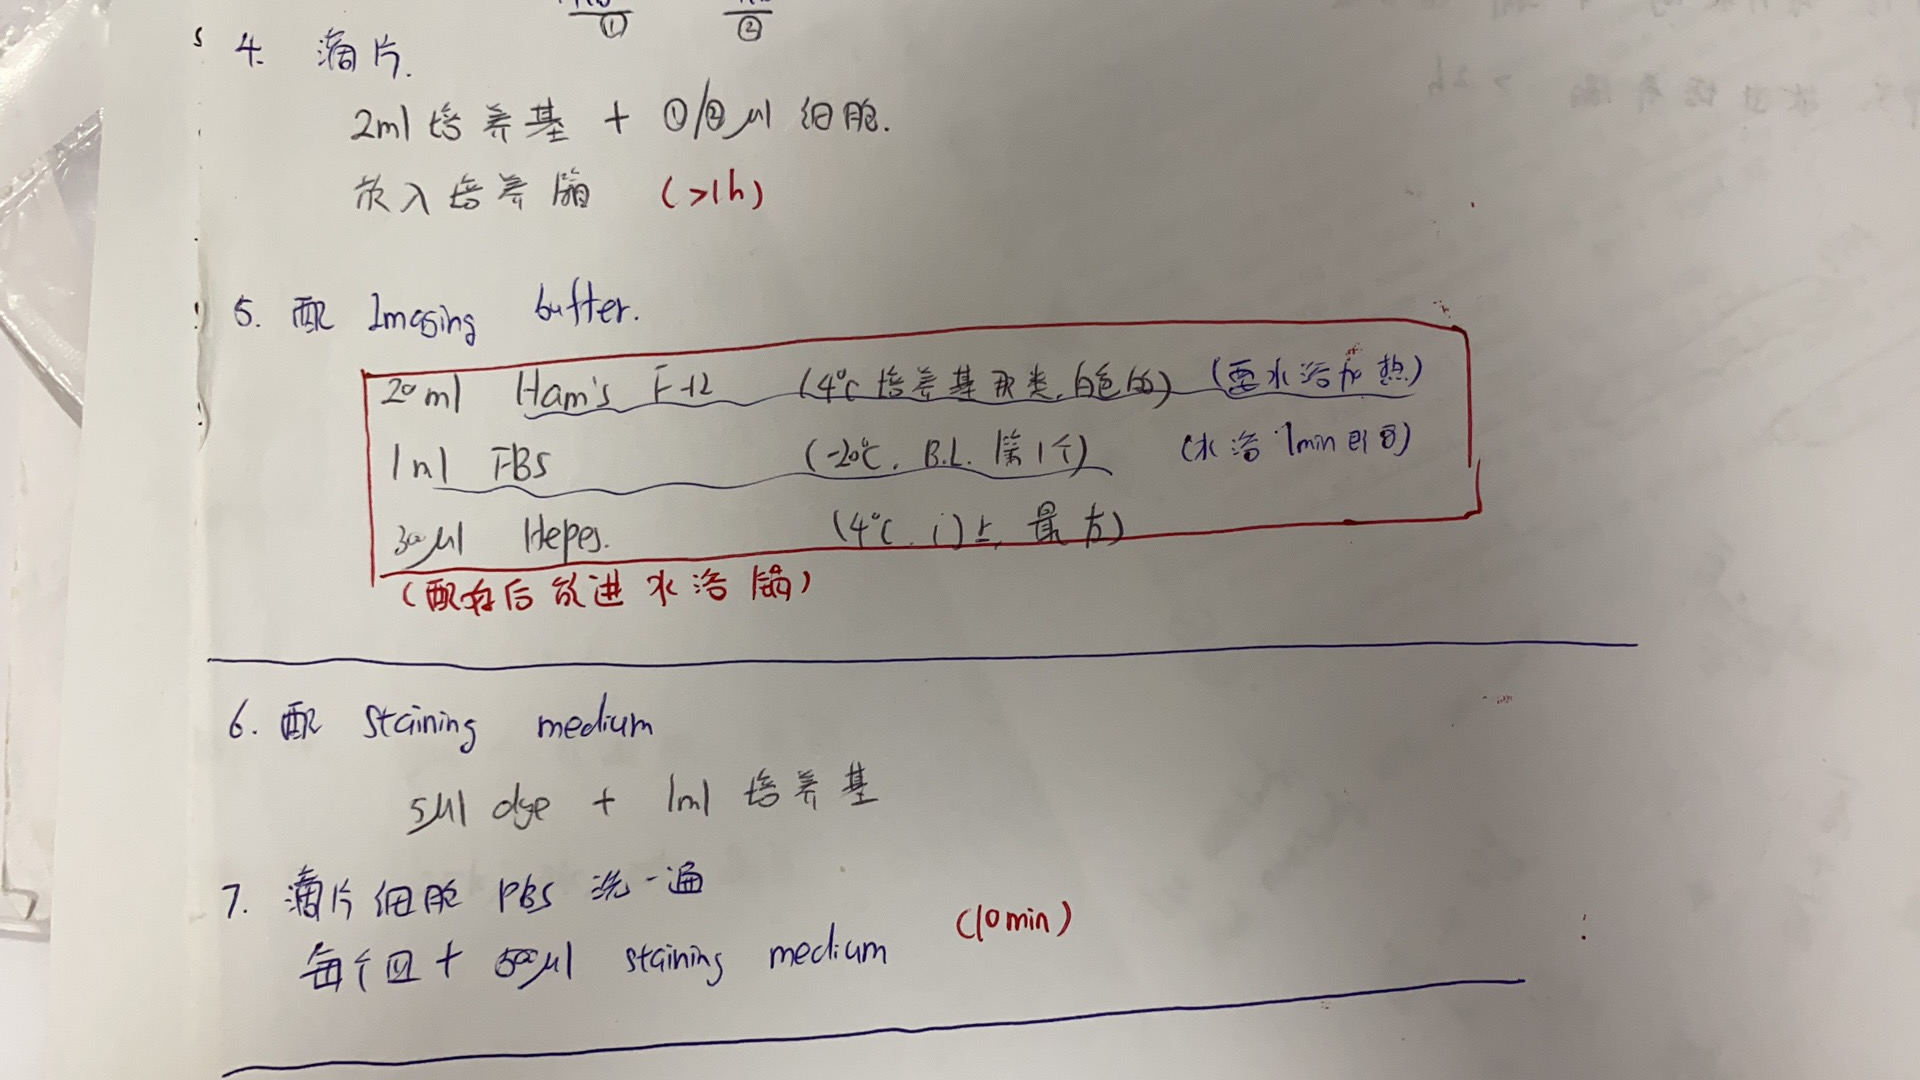 ① ②
4. 滴片.
2ml 培养基 + ①/② μl 细胞.
放入培养箱 (>1h)
5. 配 Imaging buffer.
20ml Ham's F-12 (4℃ 培养基那类,白色的) (要水浴加热)
1ml FBS (-20℃, B.L. 第1个) (水浴 1min 即可)
300μl Hepes. (4℃, 门上, 最右)
(配好后放进水浴锅)
6. 配 Staining medium
5μl dye + 1ml 培养基
7. 滴片细胞 PBS 洗一遍
每个皿 + 500μl staining medium (10min)